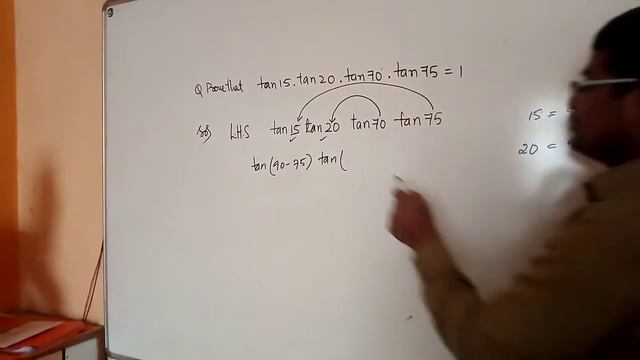 Q Prove that tan15.tan20.tan70.tan75 = 1
Sol LHS tan15 tan20 tan70 tan75
tan(90-75) tan(
15 =
20 =